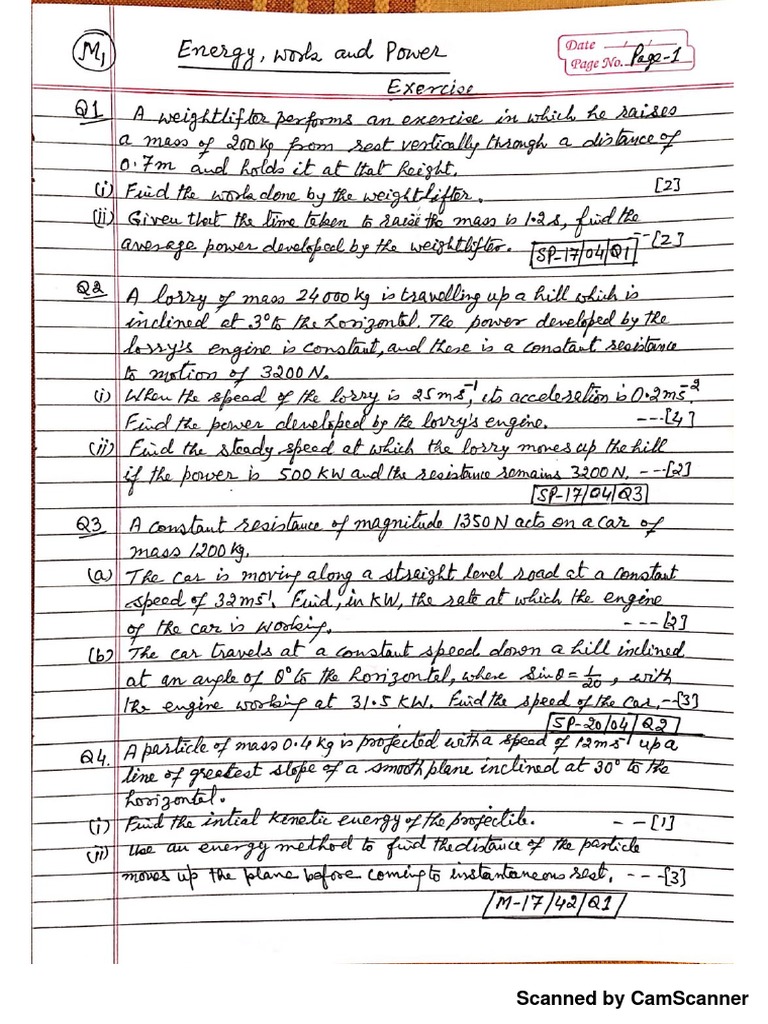 M1
Energy, work and Power
Date / /
Page No. Page-1
Exercise
Q1 A weightlifter performs an exercise in which he raises
a mass of 200 kg from rest vertically through a distance of
0.7m and holds it at that height.
(i) Find the work done by the weightlifter. [2]
(ii) Given that the time taken to raise the mass is 1.2 s, find the
average power developed by the weightlifter. --[2]
SP-17/04/Q1
Q2 A lorry of mass 24000 kg is travelling up a hill which is
inclined at 3° to the horizontal. The power developed by the
lorry's engine is constant, and there is a constant resistance
to motion of 3200 N.
(i) When the speed of the lorry is 25 ms⁻¹, its acceleration is 0.2 ms⁻².
Find the power developed by the lorry's engine. ---[4]
(ii) Find the steady speed at which the lorry moves up the hill
if the power is 500 KW and the resistance remains 3200 N. ---[2]
SP-17/04/Q3
Q3 A constant resistance of magnitude 1350 N acts on a car of
mass 1200 kg.
(a) The car is moving along a straight level road at a constant
speed of 32 ms⁻¹. Find, in KW, the rate at which the engine
of the car is working. ---[2]
(b) The car travels at a constant speed down a hill inclined
at an angle of θ° to the horizontal, where sinθ = 1/20, with
the engine working at 31.5 KW. Find the speed of the car. --[3]
SP-20/04/Q2
Q4. A particle of mass 0.4 kg is projected with a speed of 12 ms⁻¹ up a
line of greatest slope of a smooth plane inclined at 30° to the
horizontal.
(i) Find the intial kinetic energy of the projectile. --[1]
(ii) Use an energy method to find the distance of the particle
moves up the plane before coming to instantaneous rest. ---[3]
M-17/42/Q1
Scanned by CamScanner